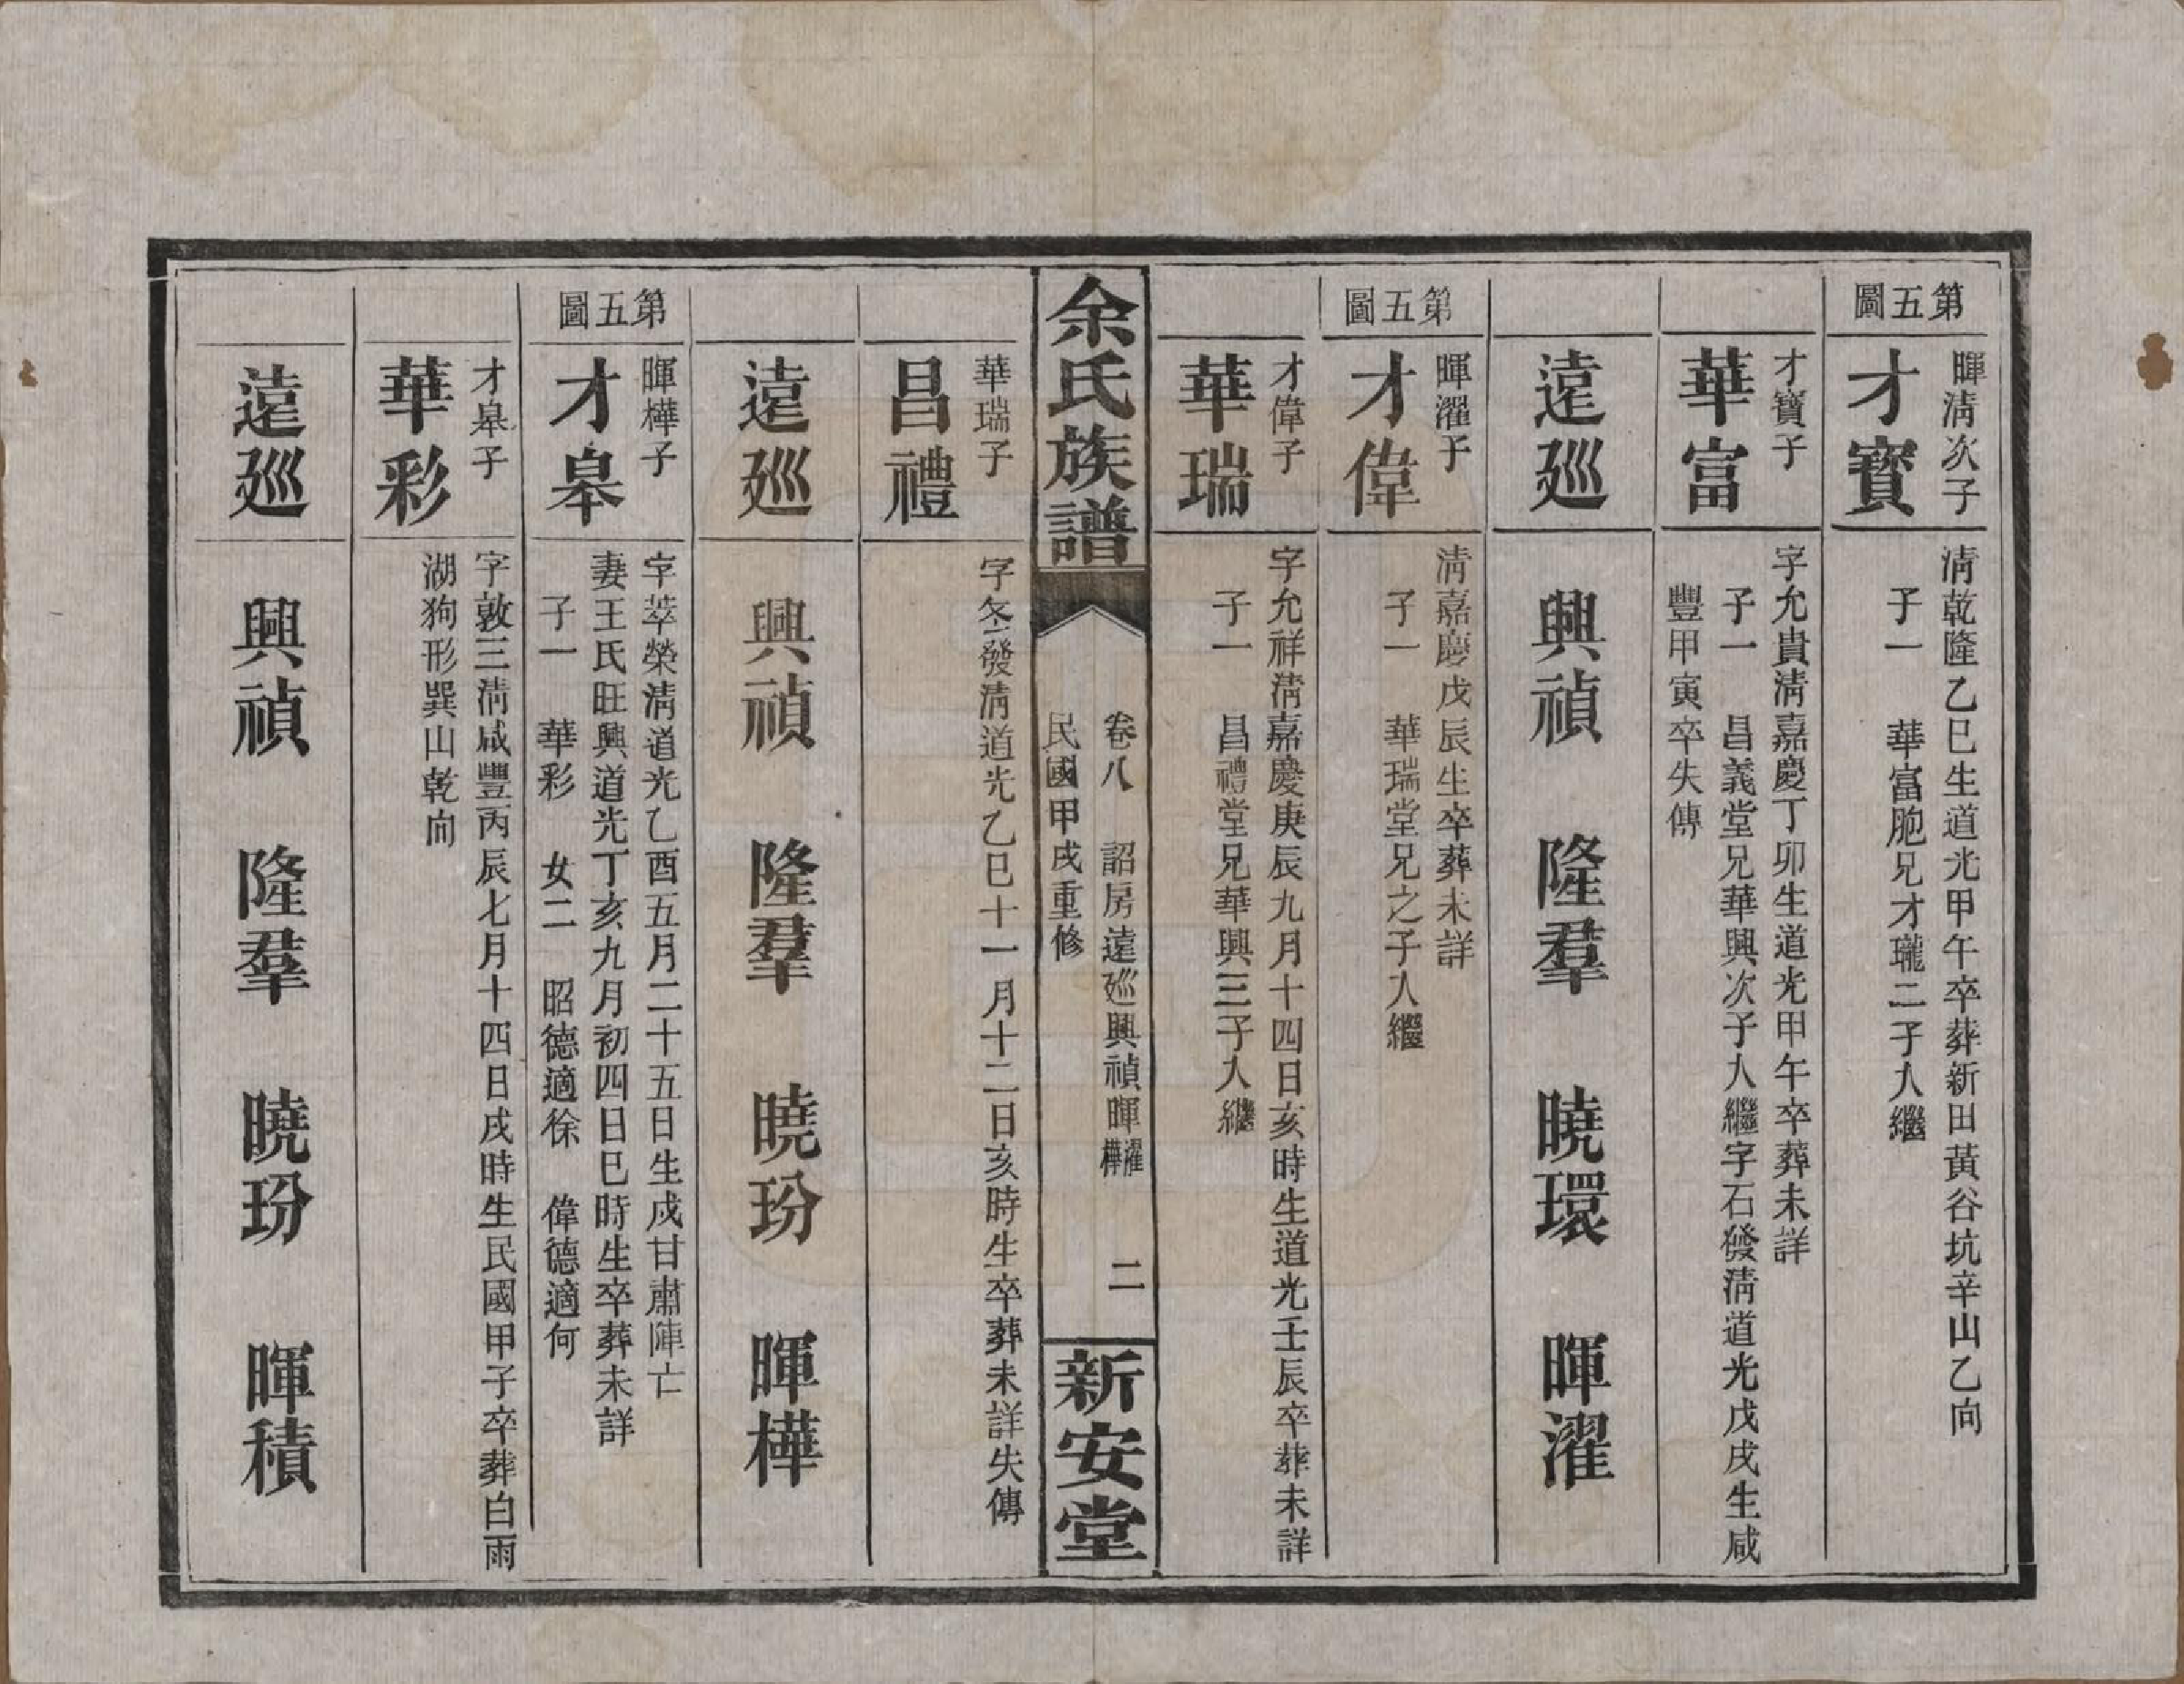 第五圖
暉淸次子
才寳
淸乾隆乙巳生道光甲午卒葬新田黃谷坑辛山乙向
子一　華富胞兄才瓏二子入繼
才寳子
華富
字允貴淸嘉慶丁卯生道光甲午卒葬未詳
子一　昌義堂兄華興次子入繼字石發淸道光戊戌生咸
豐甲寅卒失傳
遠廵　興禎　隆羣　曉環　暉濯
第五圖
暉濯子
才偉
淸嘉慶戊辰生卒葬未詳
子一　華瑞堂兄之子入繼
才偉子
華瑞
字允祥淸嘉慶庚辰九月十四日亥時生道光壬辰卒葬未詳
子一　昌禮堂兄華興三子入繼
余氏族譜
卷八　詔房遠廵興禎暉濯樺　二
民國甲戌重修
新安堂
華瑞子
昌禮
字冬發淸道光乙巳十一月十二日亥時生卒葬未詳失傳
遠廵　興禎　隆羣　曉玢　暉樺
第五圖
暉樺子
才皋
字萃榮淸道光乙酉五月二十五日生戍甘肅陣亡
妻王氏旺興道光丁亥九月初四日巳時生卒葬未詳
子一　華彩　女二　昭德適徐　偉德適何
才皋子
華彩
字敦三淸咸豐丙辰七月十四日戌時生民國甲子卒葬白雨
湖狗形巽山乾向
遠廵　興禎　隆羣　曉玢　暉積